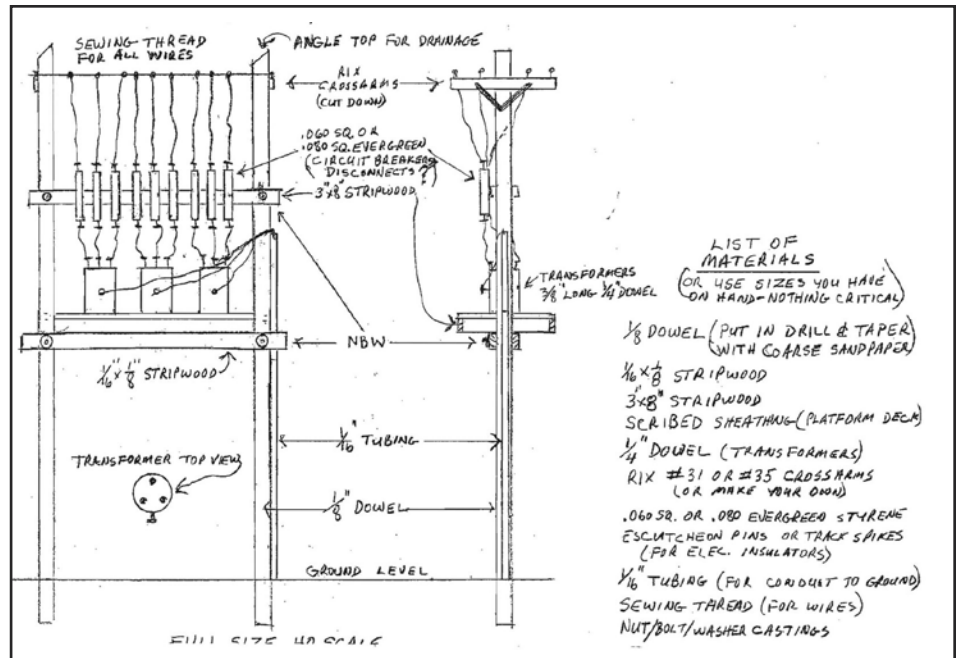 SEWING THREAD
FOR ALL WIRES
ANGLE TOP FOR DRAINAGE
RIX
CROSSARMS
(CUT DOWN)
.060 SQ. OR
.080 SQ. EVERGREEN
(CIRCUIT BREAKERS
DISCONNECTS?)
3"x8" STRIPWOOD
TRANSFORMERS
3/8" LONG 1/4" DOWEL
NBW
1/16" x 1/8" STRIPWOOD
1/16" TUBING
TRANSFORMER TOP VIEW
1/8" DOWEL
GROUND LEVEL
FULL SIZE HO SCALE
LIST OF
MATERIALS
(OR USE SIZES YOU HAVE
ON HAND-NOTHING CRITICAL)
1/8 DOWEL (PUT IN DRILL & TAPER
WITH COARSE SANDPAPER)
1/16 x 1/8 STRIPWOOD
3"x8" STRIPWOOD
SCRIBED SHEATHING (PLATFORM DECK)
1/4" DOWEL (TRANSFORMERS)
RIX #31 OR #35 CROSSARMS
(OR MAKE YOUR OWN)
.060 SQ. OR .080 EVERGREEN STYRENE
ESCUTCHEON PINS OR TRACK SPIKES
(FOR ELEC. INSULATORS)
1/16" TUBING (FOR CONDUIT TO GROUND)
SEWING THREAD (FOR WIRES)
NUT/BOLT/WASHER CASTINGS